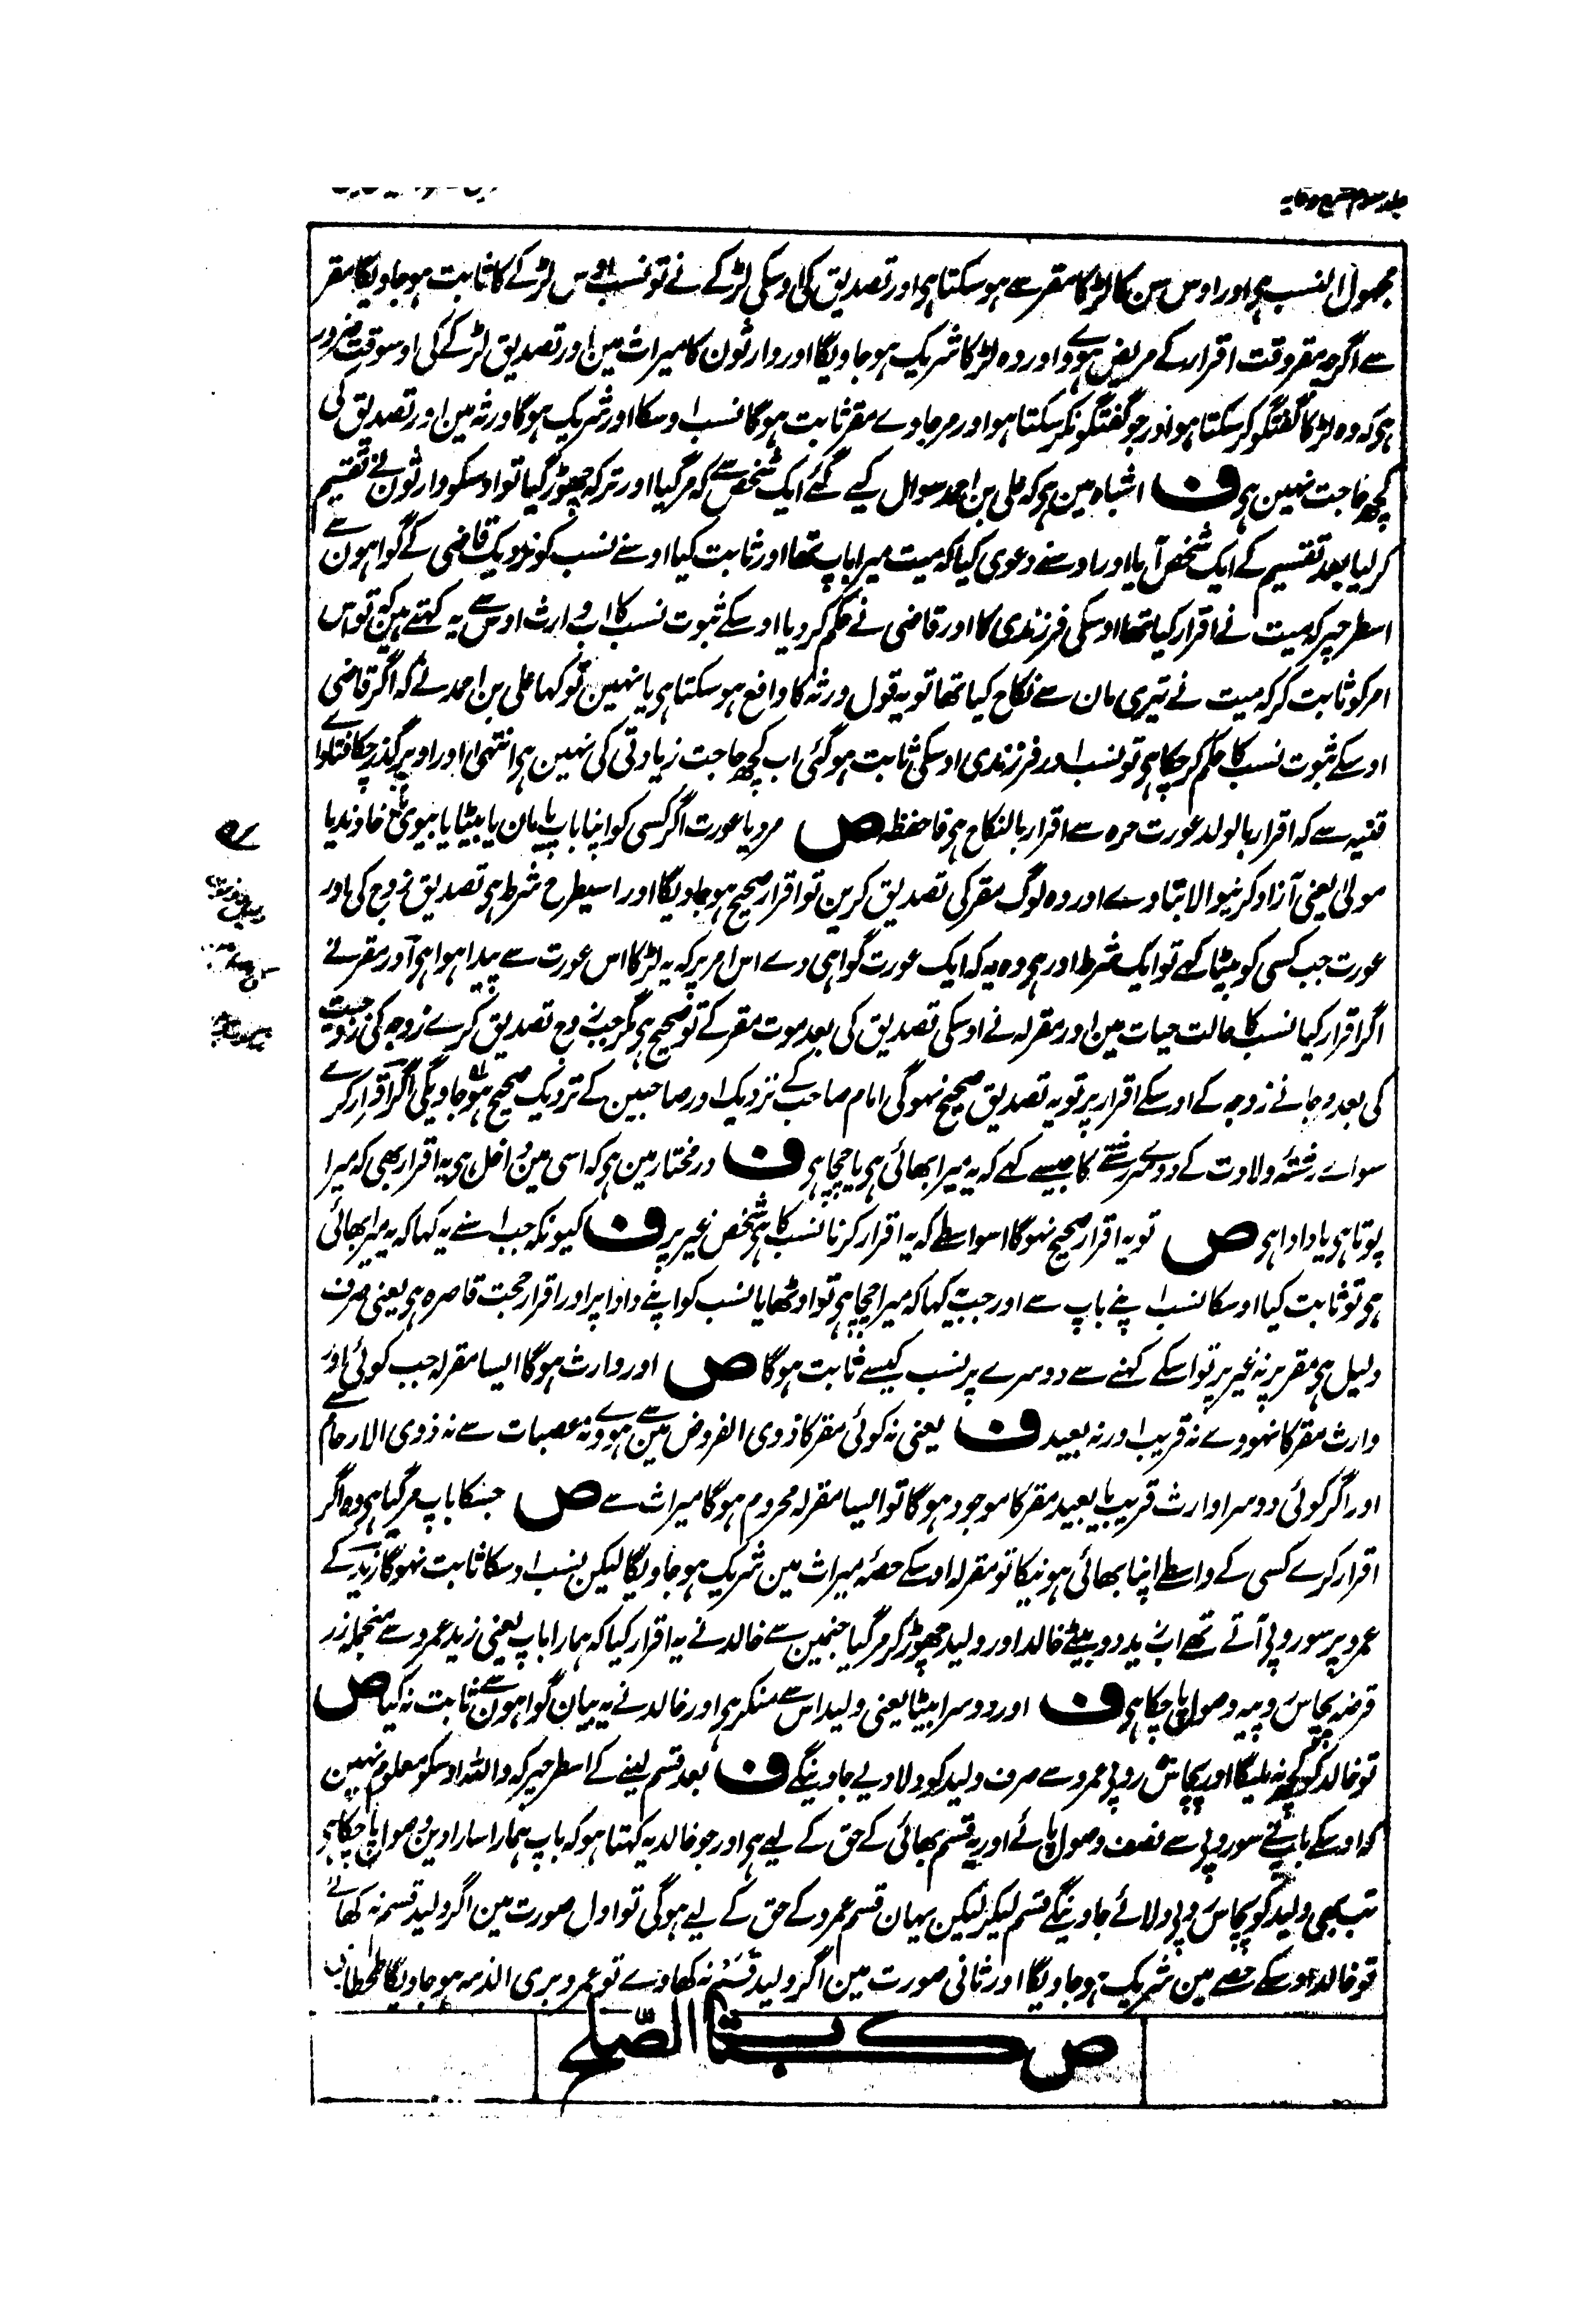 جلد سوم شرح وقایہ
مجہول النسب ہی اور اوس سن کا لڑکا مقر سے ہو سکتا ہی اور تصدیق کی اوسکی لڑکے نے تو نسب اوس لڑکے کا ثابت ہو جاویگا مقر
سے اگرچہ مقر وقت اقرار کے مریض ہووے اور وہ لڑکا شریک ہو جاویگا اور وارثون کا میراث مین اور تصدیق لڑکے کی اوسوقت ضرور
ہی کہ وہ لڑکا گفتگو کر سکتا ہو اور جو گفتگو نکر سکتا ہو اور مر جاوے مقر ثابت ہوگا نسب اوسکا اور شریک ہوگا ورثہ مین اور تصدیق کی
کچھ حاجت نہین ہی ف اشباہ مین ہی کہ علی بن احمد سوال کیے گئے ایک شخص سے کہ مر گیا اور ترکہ چھوڑ گیا تو اوسکو وارثون نے تقسیم
کر لیا بعد تقسیم کے ایک شخص آیا اور اوسنے دعوی کیا کہ میت میرا باپ تھا اور ثابت کیا اوسنے نسب کو نزدیک قاضی کے گواہون سے
اسطرحپر کہ میت نے اقرار کیا تھا اوسکی فرزندی کا اور قاضی نے حکم کر دیا اوسکے ثبوت نسب کا اب وارث اوس سے یہ کہتے ہین کہ تو اس
امر کو ثابت کر کہ میت نے تیری مان سے نکاح کیا تھا تو یہ قول ورثہ کا دافع ہو سکتا ہی یا نہین تو کہا علی بن احمد نے کہ اگر قاضی
اوسکے ثبوت نسب کا حکم کر چکا ہی تو نسب اور فرزندی اوسکی ثابت ہو گئی اب کچھ حاجت زیادتی کی نہین ہی انتہی اور اوپر گذر چکا فتاواے
قنیہ سے کہ اقرار بالولد عورت حرہ سے اقرار بالنکاح ہی فاحفظہ ص مرد یا عورت اگر کسی کو اپنا باپ یا مان یا بیٹا یا بیوی یا خاوند یا
مولی یعنی آزاد کرنیوالا بتاوے اور وہ لوگ مقر کی تصدیق کرین تو اقرار صحیح ہو جاویگا اور اسیطرح شرط ہی تصدیق زوج کی اور
عورت جب کسی کو بیٹا کہے تو ایک شرط اور ہی وہ یہ کہ ایک عورت گواہی دے اس امر پر کہ یہ لڑکا اس عورت سے پیدا ہوا ہی اور مقر نے
اگر اقرار کیا نسب کا حالت حیات مین اور مقر لہ نے اوسکی تصدیق کی بعد موت مقر کے تو صحیح ہی مگر جب زوج تصدیق کرے زوجہ کی زوجیت
کی بعد مر جانے زوجہ کے اوسکے اقرار پر تو یہ تصدیق صحیح نہوگی امام صاحب کے نزدیک اور صاحبین کے نزدیک صحیح ہو جاویگی اگر اقرار کرے
سواے رشتۂ ولادت کے دوسرے رشتے کا جیسے کہے کہ یہ میرا بھائی ہی یا چچا ہی ف درمختار مین ہی کہ اسی مین داخل ہی یہ اقرار بھی کہ میرا
پوتا ہی یا دادا ہی ص تو یہ اقرار صحیح نہوگا اسواسطے کہ یہ اقرار کرنا نسب کا ہی شخص غیر پر ف کیونکہ جب اسنے یہ کہا کہ یہ میرا بھائی
ہی تو ثابت کیا اوسکا نسب اپنے باپ سے اور جب کہا کہ میرا چچا ہی تو اوٹھایا نسب کو اپنے دادا پر اور اقرار حجت قاصرہ ہی یعنی صرف
دلیل ہی مقر پر نہ غیر پر تو اسکے کہنے سے دوسرے پر نسب کیسے ثابت ہوگا ص اور وارث ہوگا ایسا مقر لہ جب کوئی اور
وارث مقر کا نہووے نہ قریب اور نہ بعید ف یعنی نہ کوئی مقر کا ذوی الفروض مین سے ہووے نہ عصبات سے نہ ذوی الارحام سے
اور اگر کوئی دوسرا وارث قریب یا بعید مقر کا موجود ہوگا تو ایسا مقر لہ محروم ہوگا میراث سے ص جسکا باپ مر گیا ہی وہ اگر
اقرار کرے کسی کے واسطے اپنا بھائی ہونیکا تو مقر لہ اوسکے حصۂ میراث مین شریک ہو جاویگا لیکن نسب اوسکا ثابت نہوگا زید کے
عمرو پر سو روپی آتے تھے اب زید دو بیٹے خالد اور ولید چھوڑ کر مر گیا جنمین سے خالد نے یہ اقرار کیا کہ ہمارا باپ یعنی زید عمرو سے منجملہ زر
قرضہ پچاس روپیہ وصول پا چکا ہی ف اور دوسرا بیٹا یعنی ولید اس سے منکر ہی اور خالد نے یہ بیان گواہون سے ثابت نہ کیا ص
تو خالد کو کچھ نہ ملیگا اور پچاس روپی عمرو سے صرف ولید کو دلا دیے جاوینگے ف بعد قسم لینے کے اسطرحپر کہ واللہ اوسکو معلوم نہین
کہ اوسکے باپ نے سو روپی سے نصف وصول پائے اور یہ قسم بھائی کے حق کے لیے ہی اور جو خالد یہ کہتا ہو کہ باپ ہمارا سارا دین وصول پا چکا ہی
تب بھی ولید کو پچاس روپی دلائے جاوینگے قسم لیکر لیکن یہان قسم عمرو کے حق کے لیے ہوگی تو اول صورت مین اگر ولید قسم نہ کھائے
تو خالد اوسکے حصے مین شریک ہو جاویگا اور ثانی صورت مین اگر ولید قسم نہ کھاوے تو عمرو بری الذمہ ہو جاویگا طحطاوی
ص کتاب الصلح